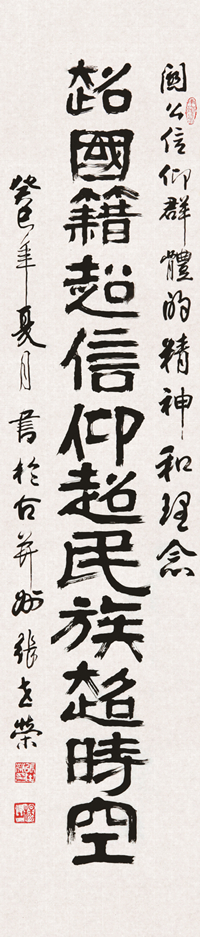 關公信仰群體的精神和理念
超國籍超信仰超民族超時空
癸巳年夏月書於古并州張志榮